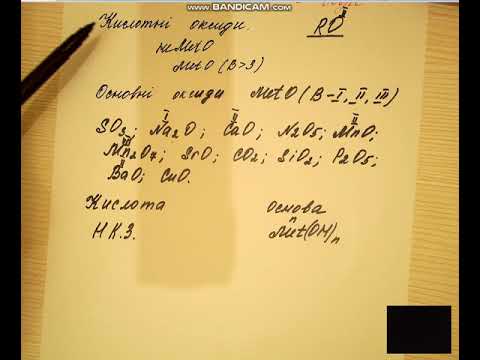 WWW.BANDICAM.COM
Кислотні оксиди. RO II
неMetO
MetO (B>3)
Основні оксиди MetO (B-I, II, III)
SO3; Na2O I; CaO II; N2O5; MnO II;
Mn2O7 VII; SrO; CO2; SiO2; P2O5;
BaO II; CuO.
Кислота Основа
H К.З. Met(OH)n n